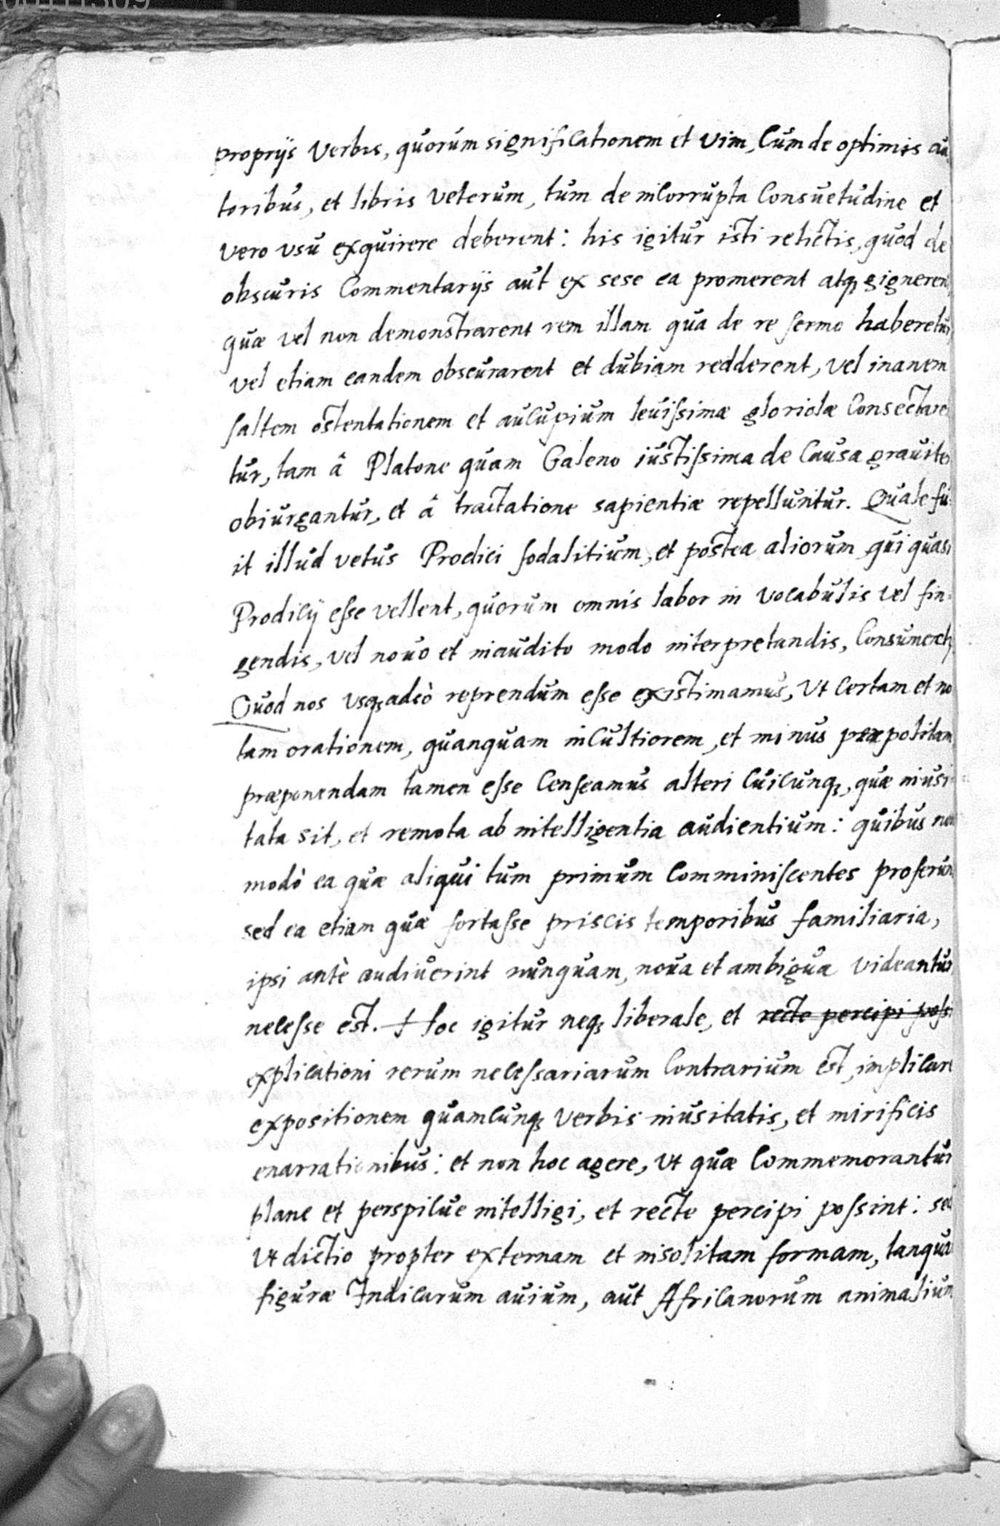 proprijs verbis, quorum significationem et vim, cum de optimis au
toribus, et libris veterum, tum de incorrupta consuetudine et
vero usu exquirere deberent: his igitur isti relictis, quod de
obscuris commentarijs aut ex sese ea promerent atq; gignerent,
quæ vel non demonstrarent rem illam qua de re sermo haberetur,
vel etiam eandem obscurarent et dubiam redderent, vel inanem
saltem ostentationem et aucupium levissimæ gloriolæ consectare
tur, tam â Platone quam Galeno iustissima de causa graviter
obiurgantur, et â tractatione sapientiæ repelluntur. Quale fu
it illud vetus Prodici sodalitium, et postea aliorum qui quasi
Prodicij esse vellent, quorum omnis labor in vocabulis vel fin
gendis, vel novo et inaudito modo interpretandis, consumeret.
Quod nos usq; adeò reprendum esse existimamus, ut certam et no
tam orationem, quanquam incultiorem, et minus præpolitam
præponendam tamen esse censeamus alteri cuicunq; quæ inusi
tata sit, et remota ab intelligentia audientium: quibus non
modò ea quæ aliqui tum primùm comminiscentes proferunt
sed ea etiam quæ fortasse priscis temporibus familiaria,
ipsi antè audiverint nunquam, nova et ambigua videantur
necesse est. Hoc igitur neq; liberale, et recte percipi possi
explicationi rerum necessariarum contrarium est, implicare
expositionem quamcunq; verbis inusitatis, et mirificis
enarrationibus: et non hoc agere, ut quæ commemorantur
plane et perspicue intelligi, et recte percipi possint: sed
ut dictio propter externam et insolitam formam, tanquam
figuræ Indicarum avium, aut Africanorum animalium